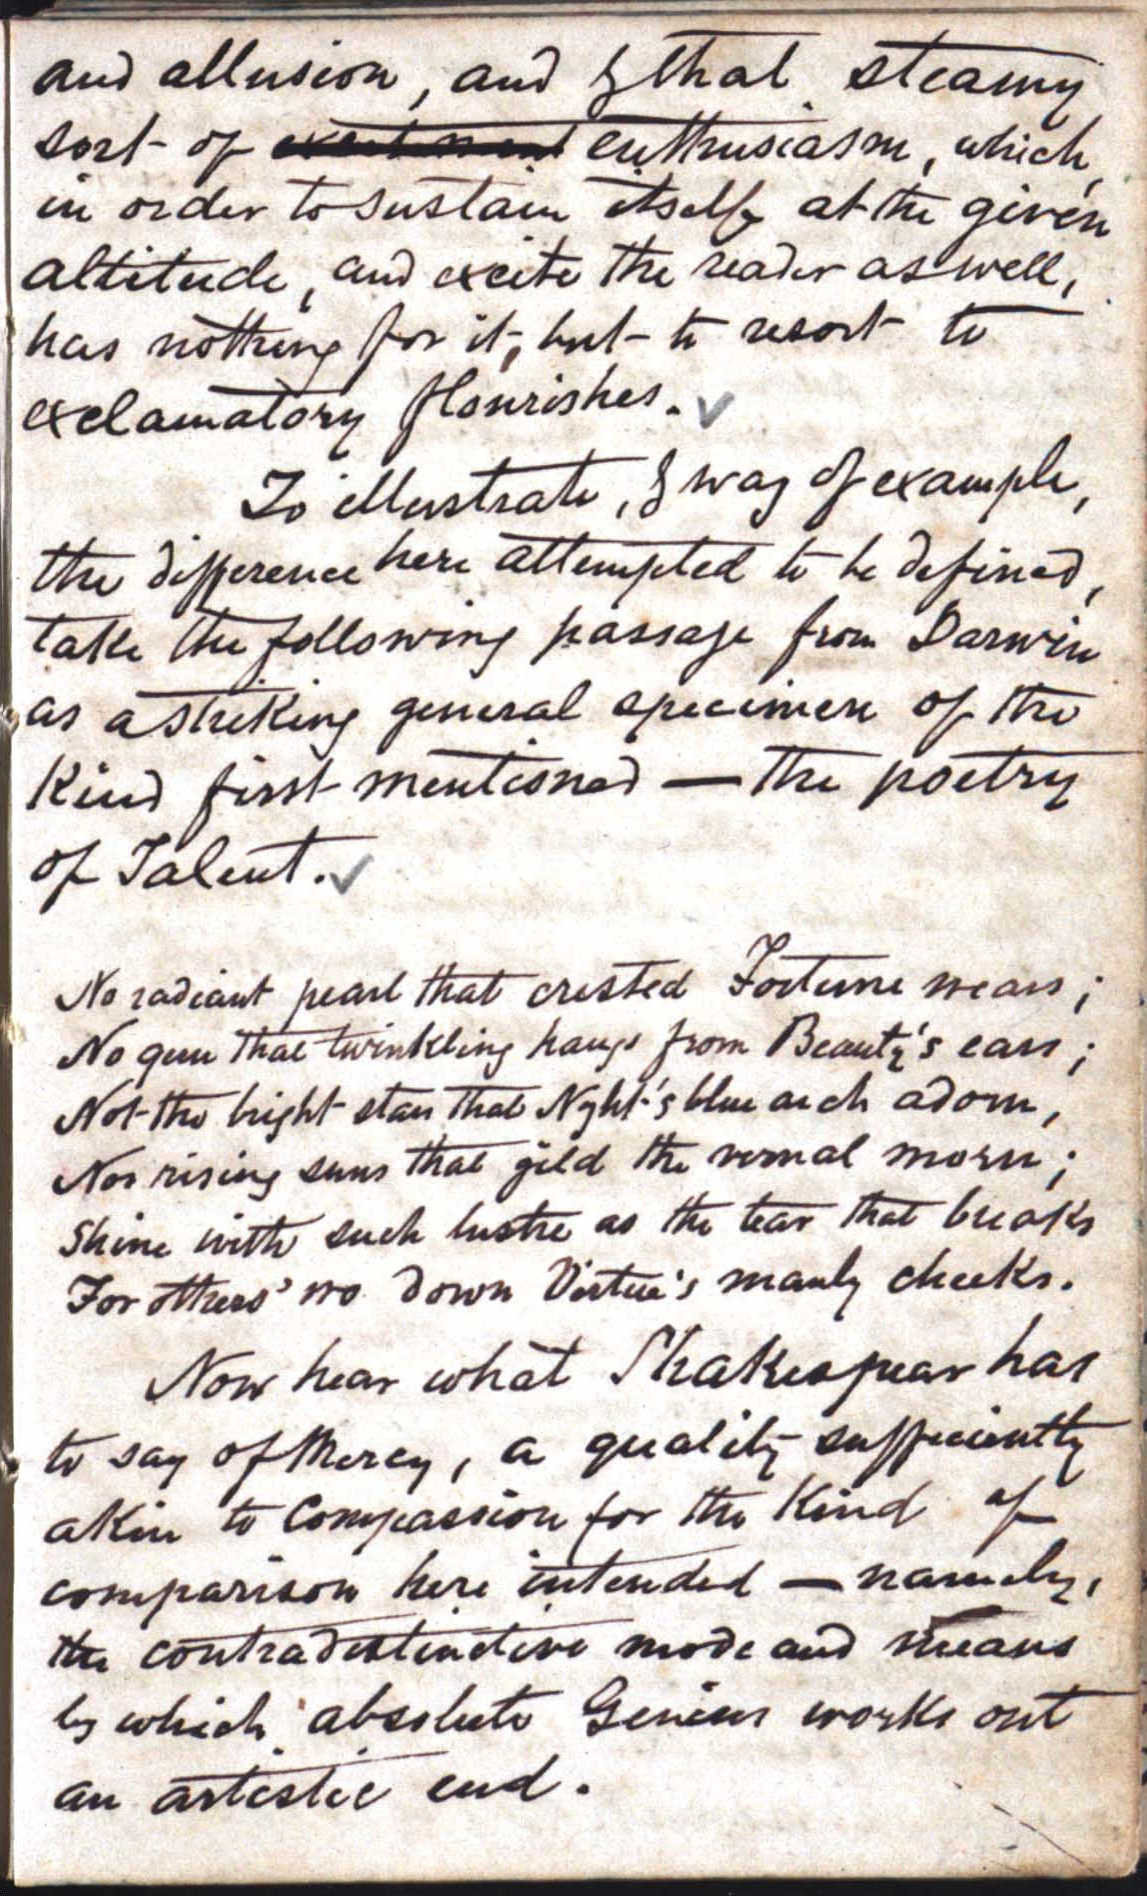 and allusion, and by that steamy
sort of excitement enthusiasm, which,
in order to sustain itself at the given
altitude, and excite the reader as well,
has nothing for it, but to resort to
exclamatory flourishes.
To illustrate, by way of example,
the difference here attempted to be defined,
take the following passage from Darwin
as a striking general specimen of the
kind first mentioned — the poetry
of Talent.
No radiant pearl that crested Fortune wears;
No gem that twinkling hangs from Beauty's ears;
Not the bright stars that Night's blue arch adorn,
Nor rising suns that gild the vernal morn;
Shine with such lustre as the tear that breaks
For others' wo down Virtue's manly cheeks.
Now hear what Shakespear has
to say of Mercy, a quality sufficiently
akin to Compassion for the kind of
comparison here intended — namely,
the contradistinctive mode and means
by which absolute Genius works out
an artistic end.